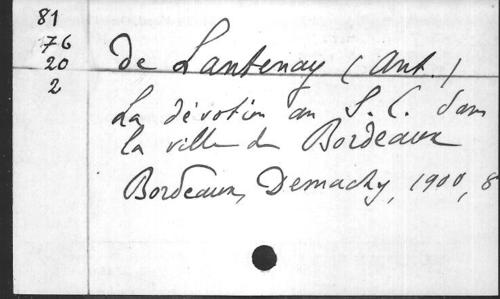 81
76
20
2
de Lantenay (Ant.)
La dévotion au S. C. dans
la ville de Bordeaux
Bordeaux, Demachy, 1900, 8